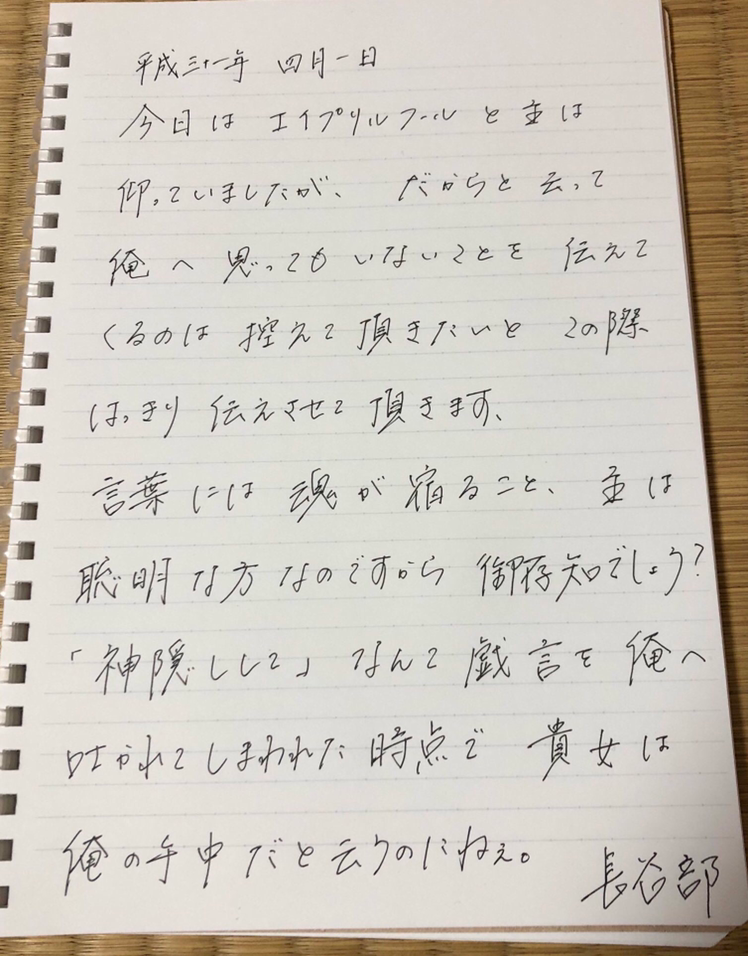 平成三十一年 四月一日
今日は エイプリルフールと主は
仰っていましたが、 だからと云って
俺へ思ってもいないことを 伝えて
くるのは 控えて頂きたいと この際
はっきり 伝えさせて頂きます、
言葉には 魂が宿ること、 主は
聡明な方なのですから 御存知でしょう?
「神隠しして」なんて戯言を俺へ
吐かれてしまわれた時点で 貴女は
俺の手中だと云うのにねぇ。
長谷部